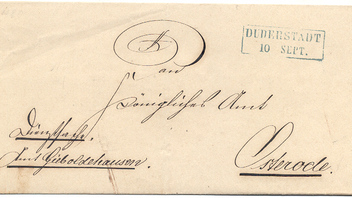 DUDERSTADT
10 SEPT.
An
Königliches Amt
Dienstsache.
Amt Gieboldehausen.
Osterode.